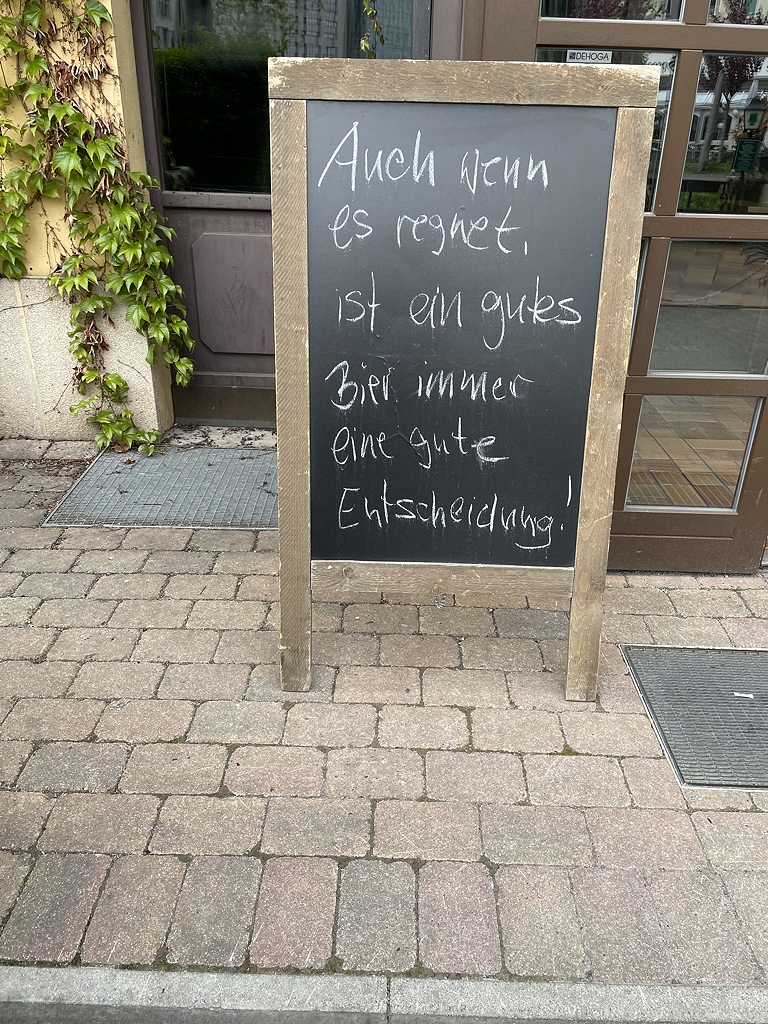 DEHOGA
Auch wenn
es regnet,
ist ein gutes
Bier immer
eine gute
Entscheidung!